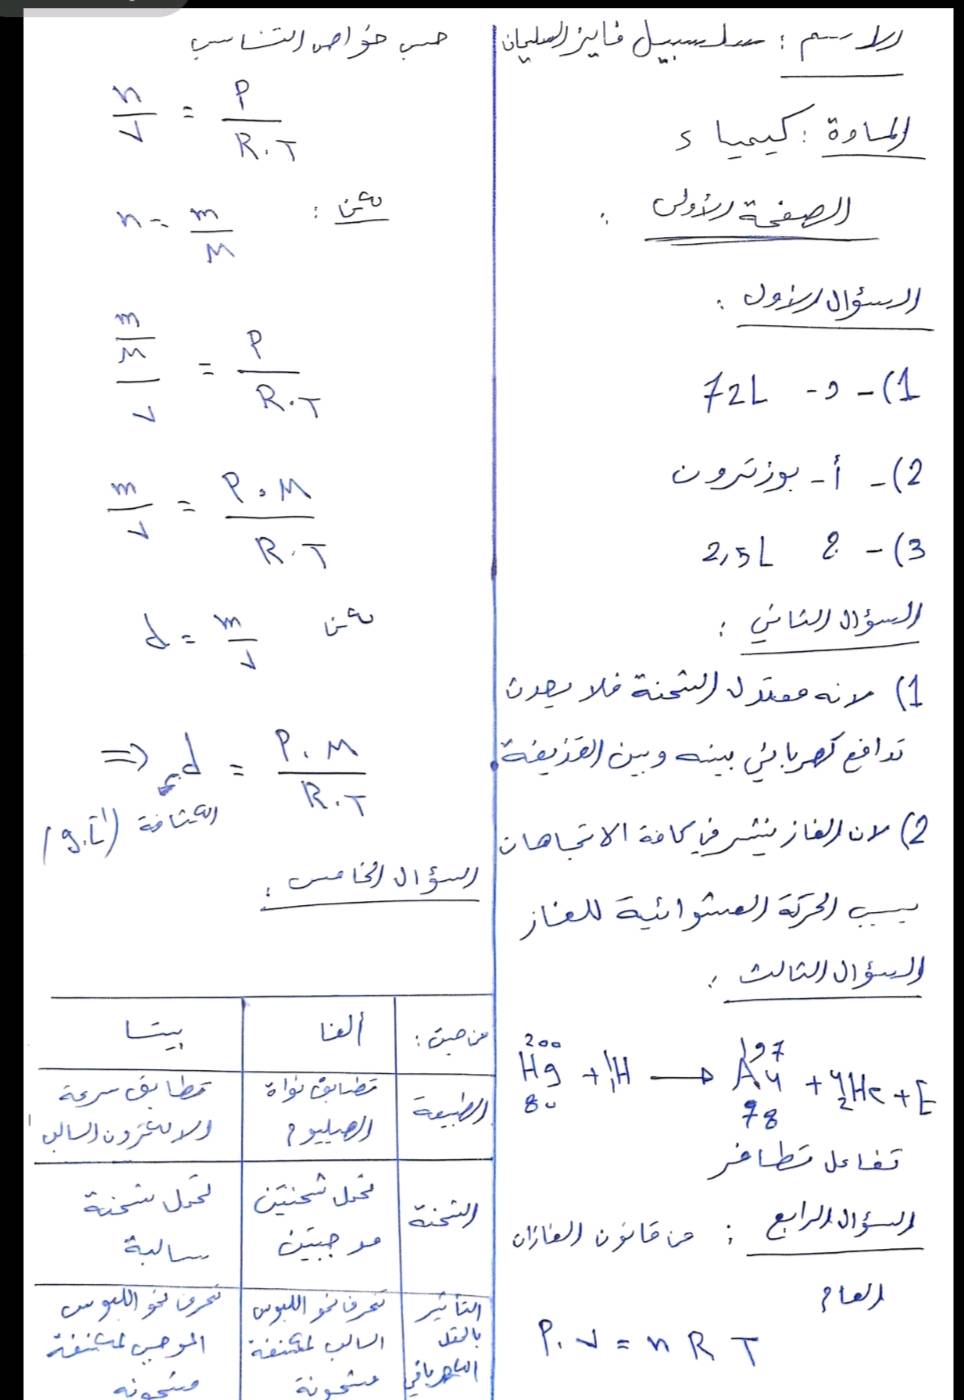 الاسم : سلسبيل فايز السليمان
المادة : كيمياء
الصفحة الأولى :
السؤال الأول :
1)- د- 72L
2)- أ- بوزترون
3)- 2,5L
السؤال الثاني :
1) لانه معتدل الشحنة فلا يحدث
تدافع كهربائي بينه وبين القذيفة.
2) لان الغاز ينتشر في كافة الاتجاهات
بسبب الحركة العشوائية للغاز
السؤال الثالث :
²⁰⁰₈₀Hg + ¹₁H → ¹⁹⁷₇₈Au + ⁴₂He + E
تفاعل تطافر
السؤال الرابع : من قانون الغازات
العام
P.V = n R T
حسب خواص التناسب
n/V = P/R.T
لكن : n = m/M
(m/M)/V = P/R.T
m/V = P.M/R.T
لكن d = m/V
⇒ d = P.M/R.T
الكثافة (g.L⁻¹)
السؤال الخامس :
من حيث : ألفا بيتا
الطبيعة تطابق نواة الهيليوم تطابق سرعة الالكترون السالب
الشحنة تحمل شحنتين موجبتين تحمل شحنة سالبة
التأثير بالحقل الكهربائي تنحرف نحو اللبوس السالب لمكثفة مشحونة تنحرف نحو اللبوس الموجب لمكثفة مشحونة